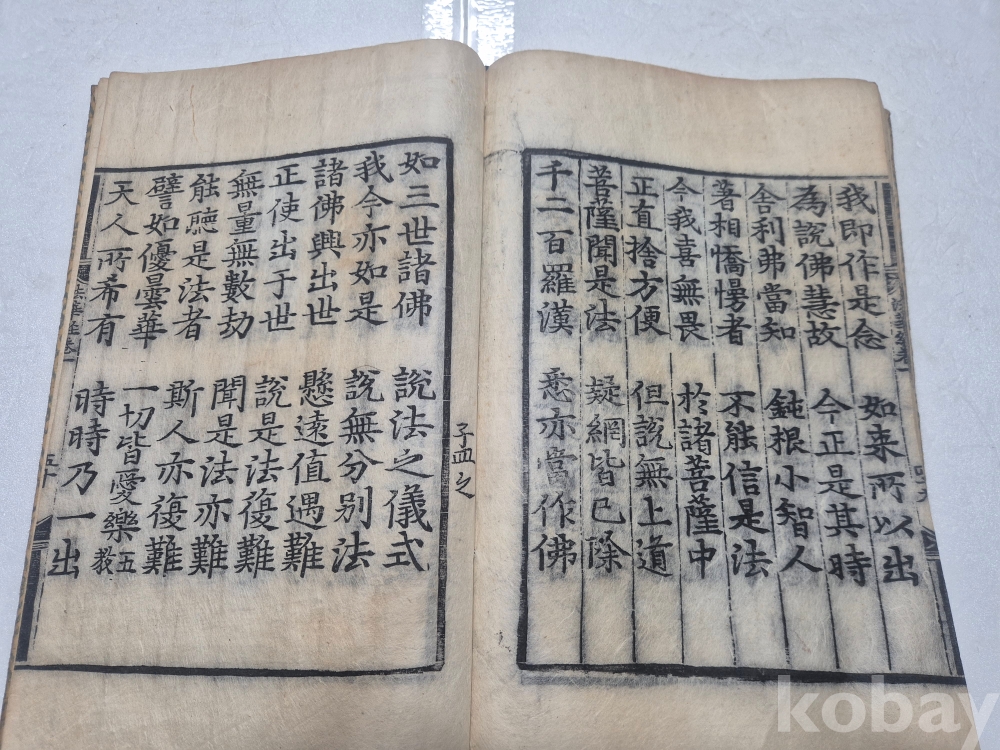 我即作是念 如来所以出
為說佛慧故 今正是其時
舍利弗當知 鈍根小智人
著相憍慢者 不能信是法
今我喜無畏 於諸菩薩中
正直捨方便 但說無上道
菩薩聞是法 疑網皆已除
千二百羅漢 悉亦當作佛
如三世諸佛 說法之儀式
我今亦如是 說無分別法
諸佛興出世 懸遠值遇難
正使出于世 說是法復難
無量無數劫 聞是法亦難
能聽是法者 斯人亦復難
譬如優曇華 一切皆愛樂
天人所希有 時時乃一出
法華經卷一
五十
kobay